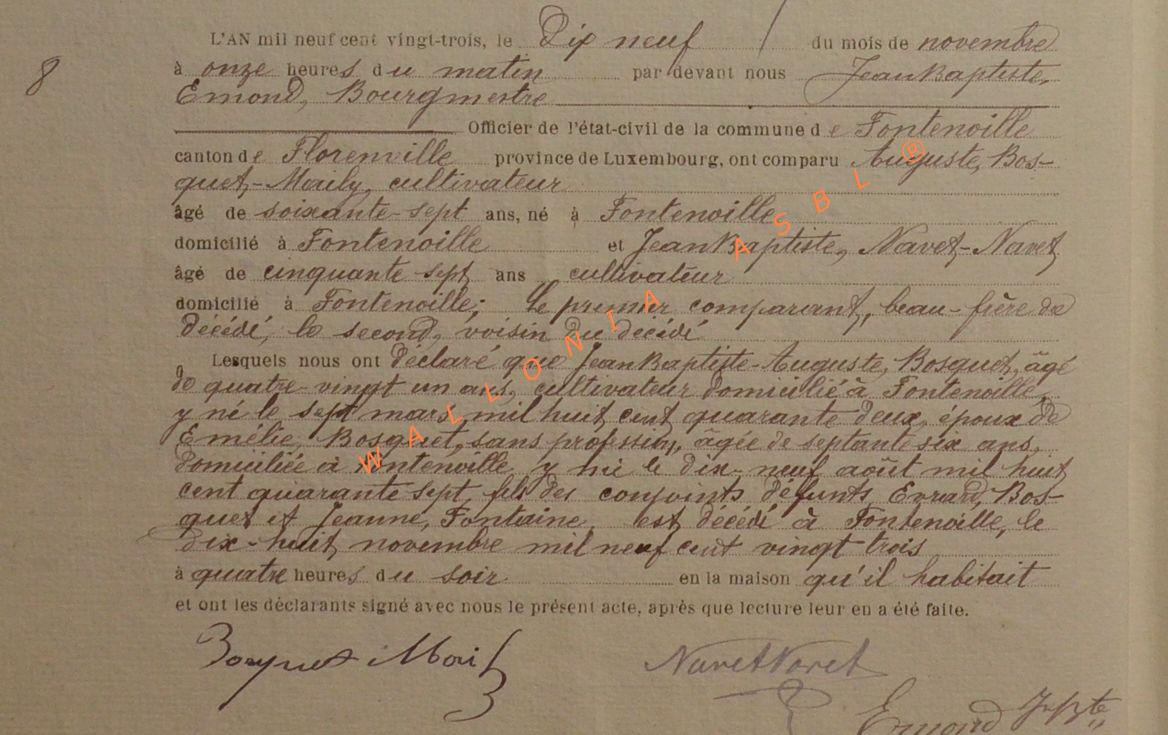 L'AN mil neuf cent vingt-trois, le Dix neuf du mois de novembre
8
à onze heures du matin par devant nous Jean Baptiste,
Emond, Bourgmestre
Officier de l'état-civil de la commune de Fontenoille
canton de Florenville province de Luxembourg, ont comparu Auguste, Bos-
quet-Maily, cultivateur
âgé de soixante-sept ans, né à Fontenoille
domicilié à Fontenoille et Jean Baptiste, Navet-Navet
âgé de cinquante sept ans cultivateur
domicilié à Fontenoille; le premier comparant, beau-frère du
décédé, le second, voisin du décédé
Lesquels nous ont déclaré que Jean Baptiste-Auguste, Bosquet, âgé
de quatre-vingt un ans, cultivateur domicilié à Fontenoille,
y né le sept mars mil huit cent quarante deux, époux de
Emélie, Bosquet, sans profession, âgée de septante six ans,
domiciliée à Fontenoille, y née le dix-neuf août mil huit
cent quarante sept, fils des conjoints défunts Evrard, Bos-
quet et Jeanne, Fontaine, est décédé à Fontenoille, le
dix-huit novembre mil neuf cent vingt trois
à quatre heures du soir en la maison qu'il habitait
et ont les déclarants signé avec nous le présent acte, après que lecture leur en a été faite.
Bosquet Maily
Navet Navet
Emond J. Bte
WALLONIA ASBL ®